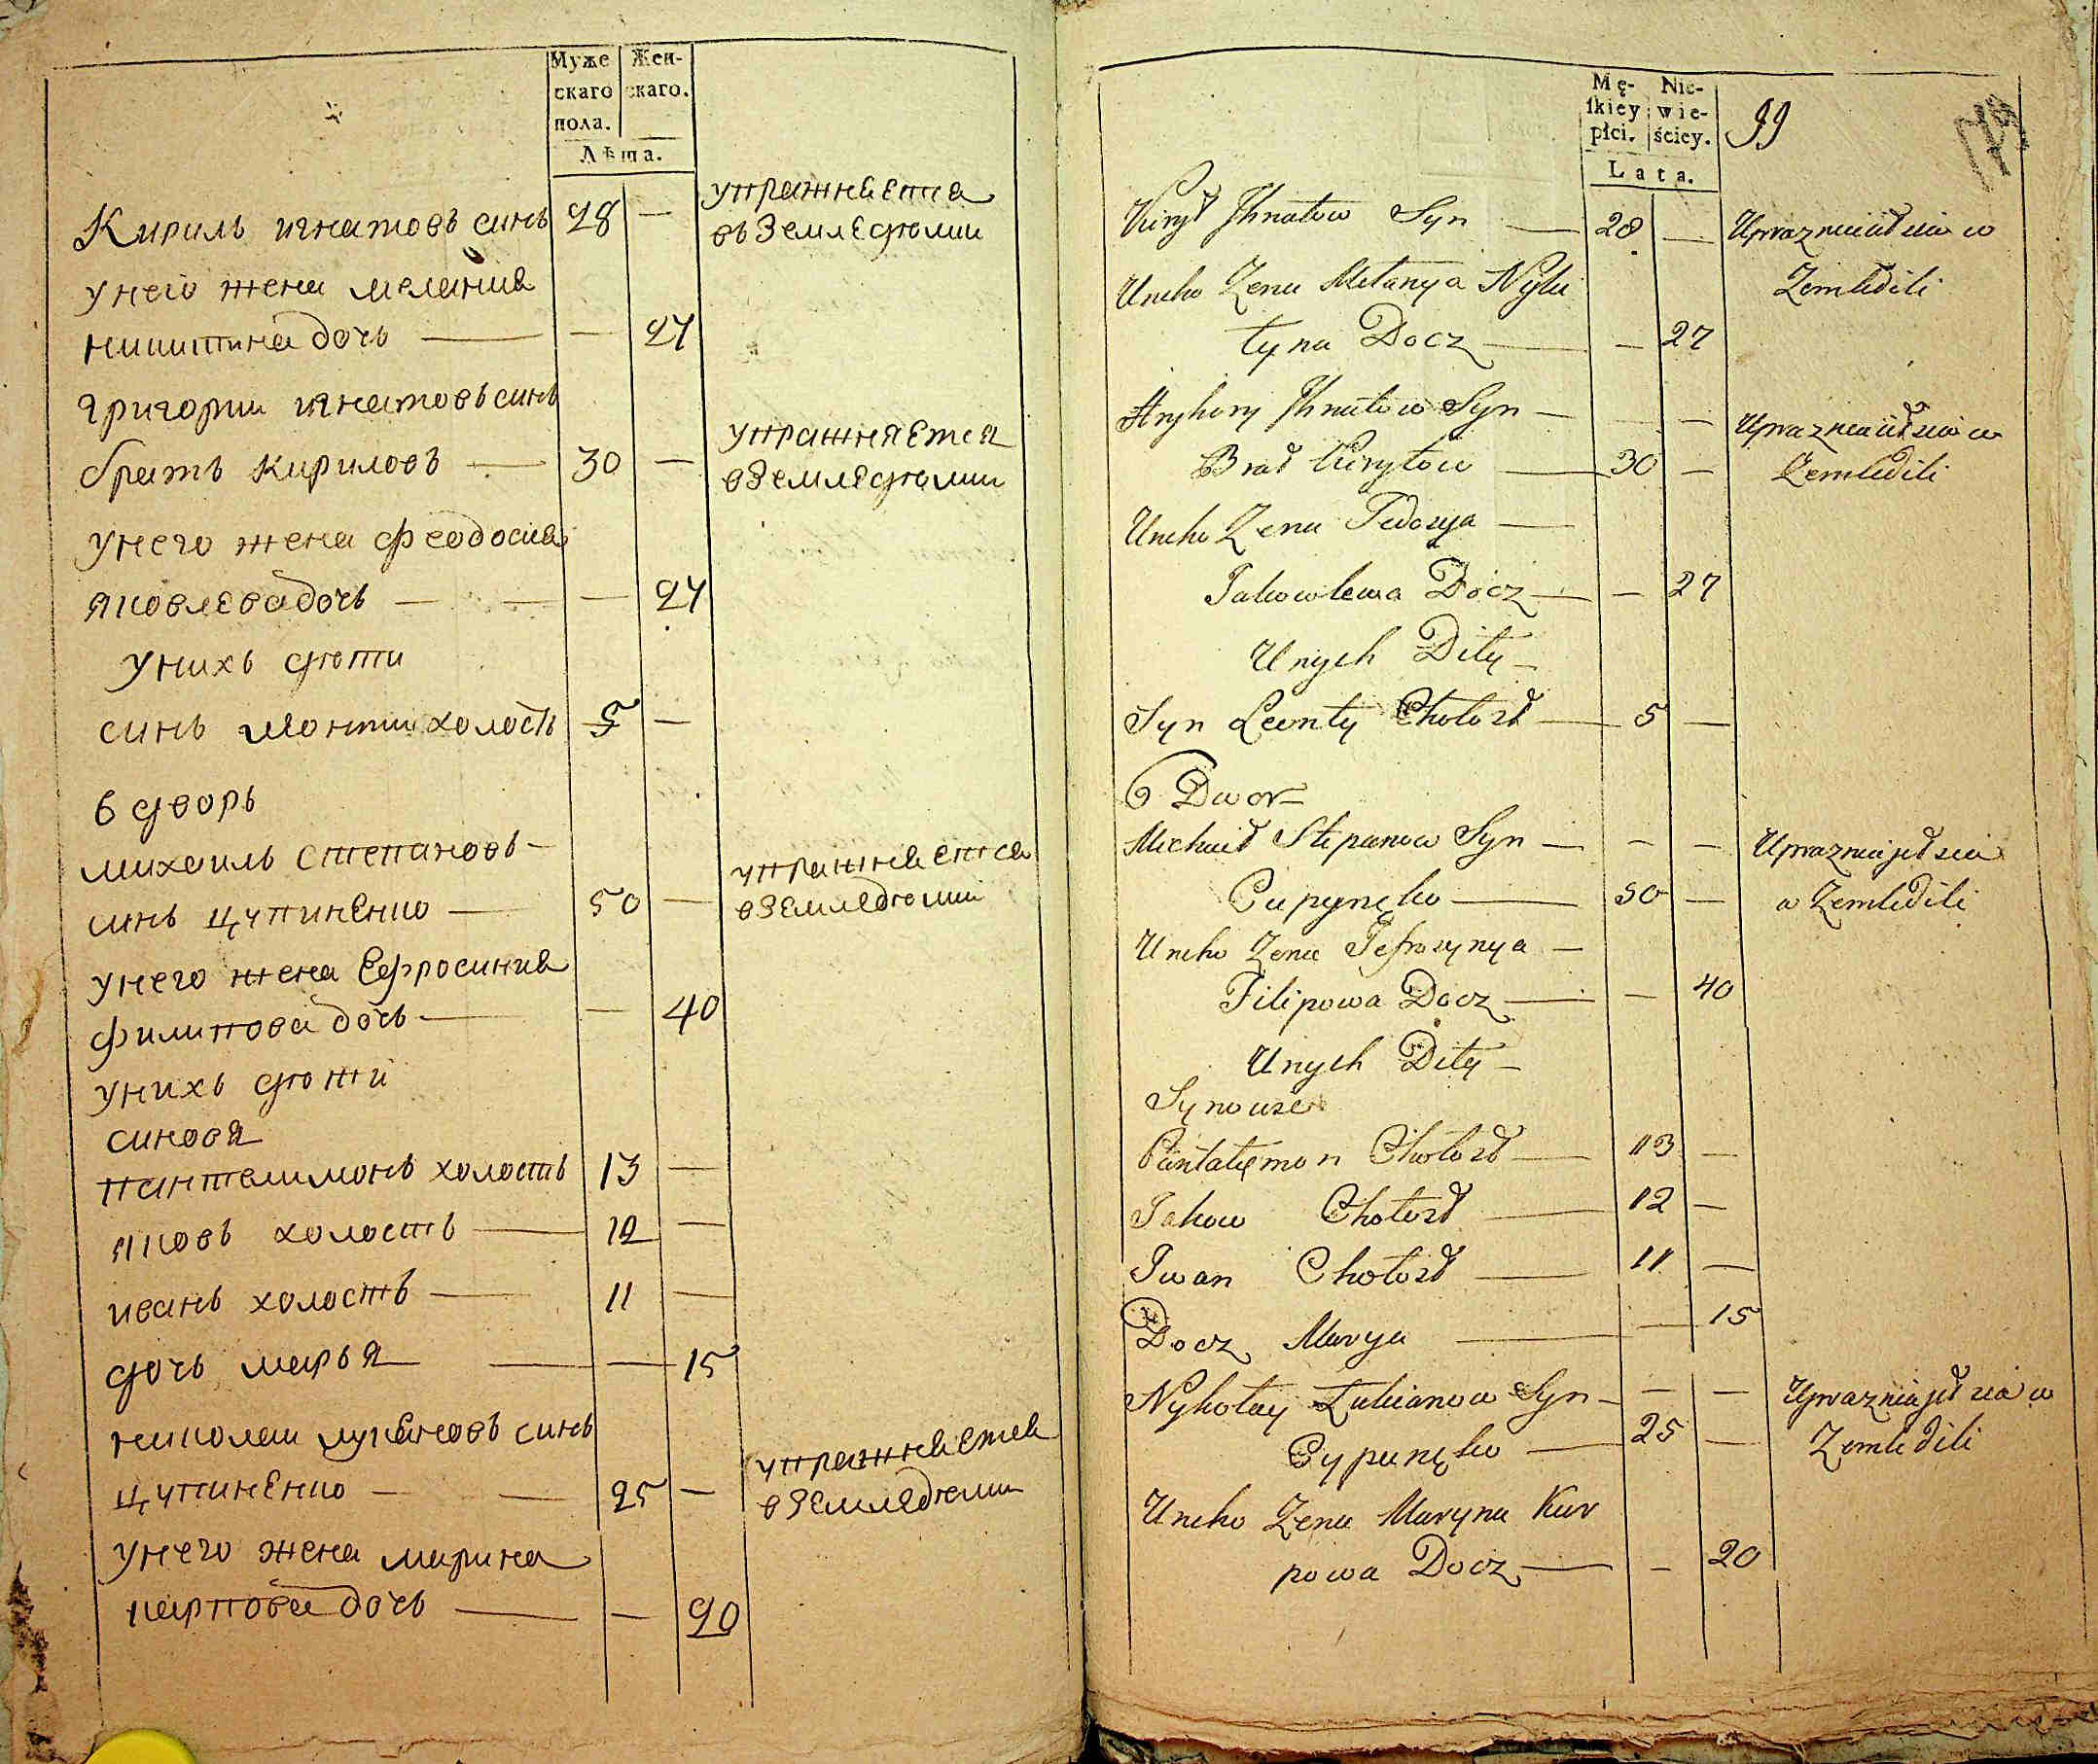 Муже
скаго
пола.
Жен-
скаго.
Лѣта.
Кирилъ игнатовъ синъ 28 —
упражняется
въ Земледѣлии
у него жена мелания
никитина дочь — — 27
григории игнатовъ синъ
братъ Кириловъ — 30 —
упражняется
в земледѣлии
у него жена феодосия
яковлева дочь — — — 27
у нихъ дѣти
синъ леонти холостъ 5 —
6 дворъ
михаилъ степановъ —
синъ цупиненко — 50 —
упражняется
в земледѣлии
у него жена Ефросиния
филипова дочь — — 40
у нихъ дѣти
синовя
пантелимонъ холостъ 13 —
яковъ холостъ — 12 —
иванъ холостъ — 11 —
дочь марья — — 15
николаи лукяновъ синъ
цупиненко — — 25 —
упражняется
в земледѣлии
у него жена марина
карпова дочь — — 20
Mę-
ſkiey
płci.
Nie-
wie-
ściey.
Lata.
99
Kirył Ihnatow Syn — 28 — Uprazniaił sia w
Zemledili
Uneho Zena Mełanya Nyki
tyna Docz — — 27
Hryhory Ihnatow Syn — — Uprazniaił sia w
Brat Kiryłow — 30 — Zemledili
Uneho Zena Fedosya —
Jakowlewa Docz — — 27
Unych Dity —
Syn Leonty Chołost — 5 —
6 Dwor —
Michaił Stepanow Syn — — — Uprazniajet sia
Cupynęko — 50 — w Zemledili
Uneho Zena Jefrosynya —
Filipowa Docz — — 40
Unych Dity —
Synowie
Pantałemon Chołost — 13 —
Jakow Chołost — 12 —
Iwan Chołost — 11 —
Docz Marya — — 15
Nykołay Łukianow Syn — — — Uprazniajet sia w
Cypunęko — 25 — Zemledili
Uneho Zena Maryna Kar
powa Docz — — 20